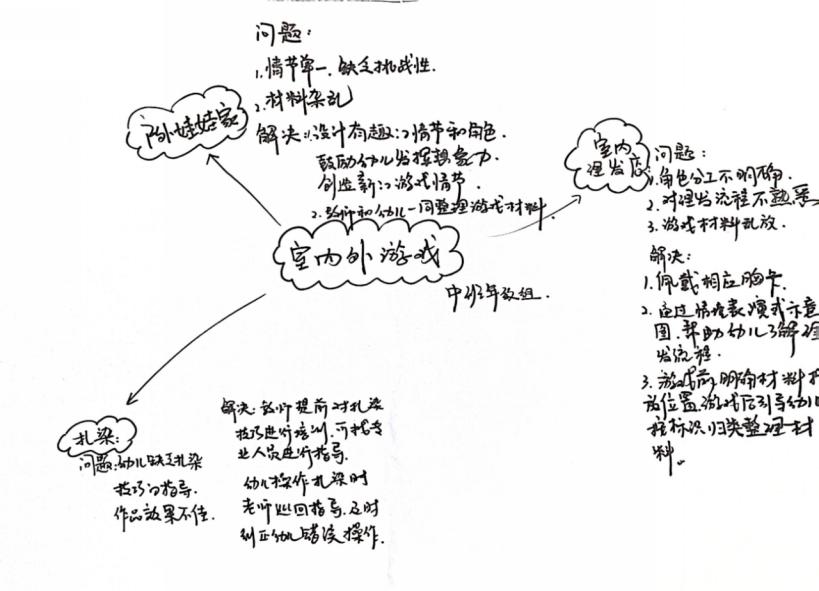 问题:
1.情节单一.缺乏挑战性.
2.材料杂乱
户外娃娃家
解决:1.设计有趣的情节和角色.
鼓励幼儿发挥想象力.
创造新的游戏情节.
2.教师和幼儿一同整理游戏材料.
室内外游戏
中班年级组.
室内
理发店
问题:
1.角色分工不明确.
2.对理发流程不熟悉
3.游戏材料乱放.
解决:
1.佩戴相应胸卡.
2.通过情境表演或示意
图.帮助幼儿了解理
发流程.
3.游戏前,明确材料摆
放位置.游戏后引导幼儿
按标识归类整理材
料。
扎染:
问题:幼儿缺乏扎染
技巧的指导.
作品效果不佳.
解决:教师提前对扎染
技巧进行培训.可找专
业人员进行指导.
幼儿操作扎染时
老师巡回指导.及时
纠正幼儿错误操作.